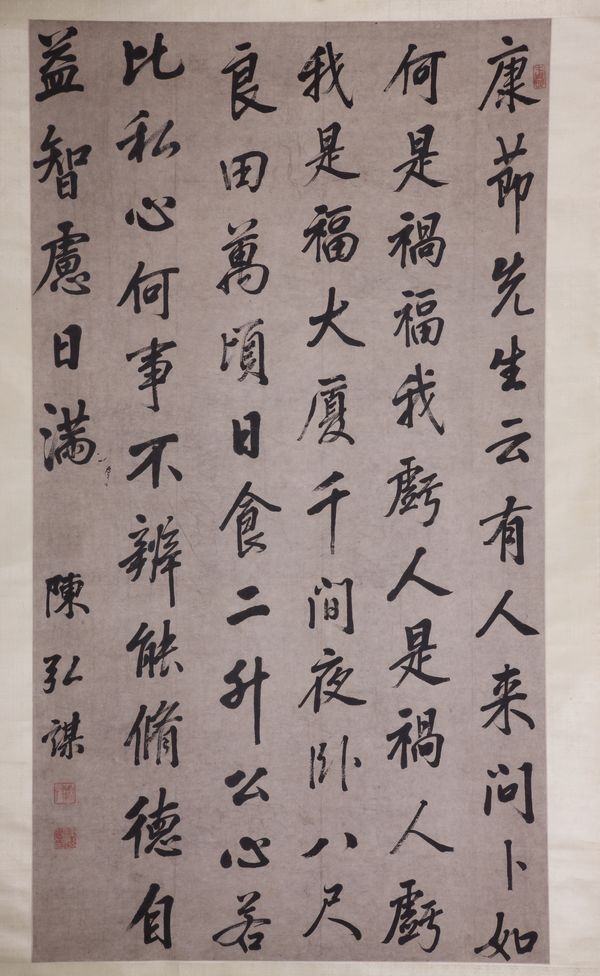 康節先生云有人来問卜如
何是禍福我虧人是禍人虧
我是福大廈千間夜卧八尺
良田萬頃日食二升公心若
比私心何事不辨能脩德自
益智慮日滿
陳弘謀